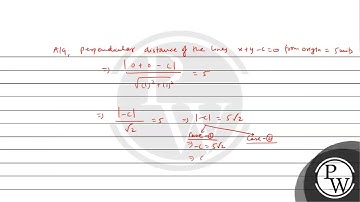 A/q, perpendicular distance of the lines x+y-c=0 from origin = 5 units
⇒ |0+0-c| / √(1)²+(1)² = 5
⇒ |-c| / √2 = 5 ⇒ |-c| = 5√2
Case-① Case-②
⇒ -c = 5√2
⇒ c
PW